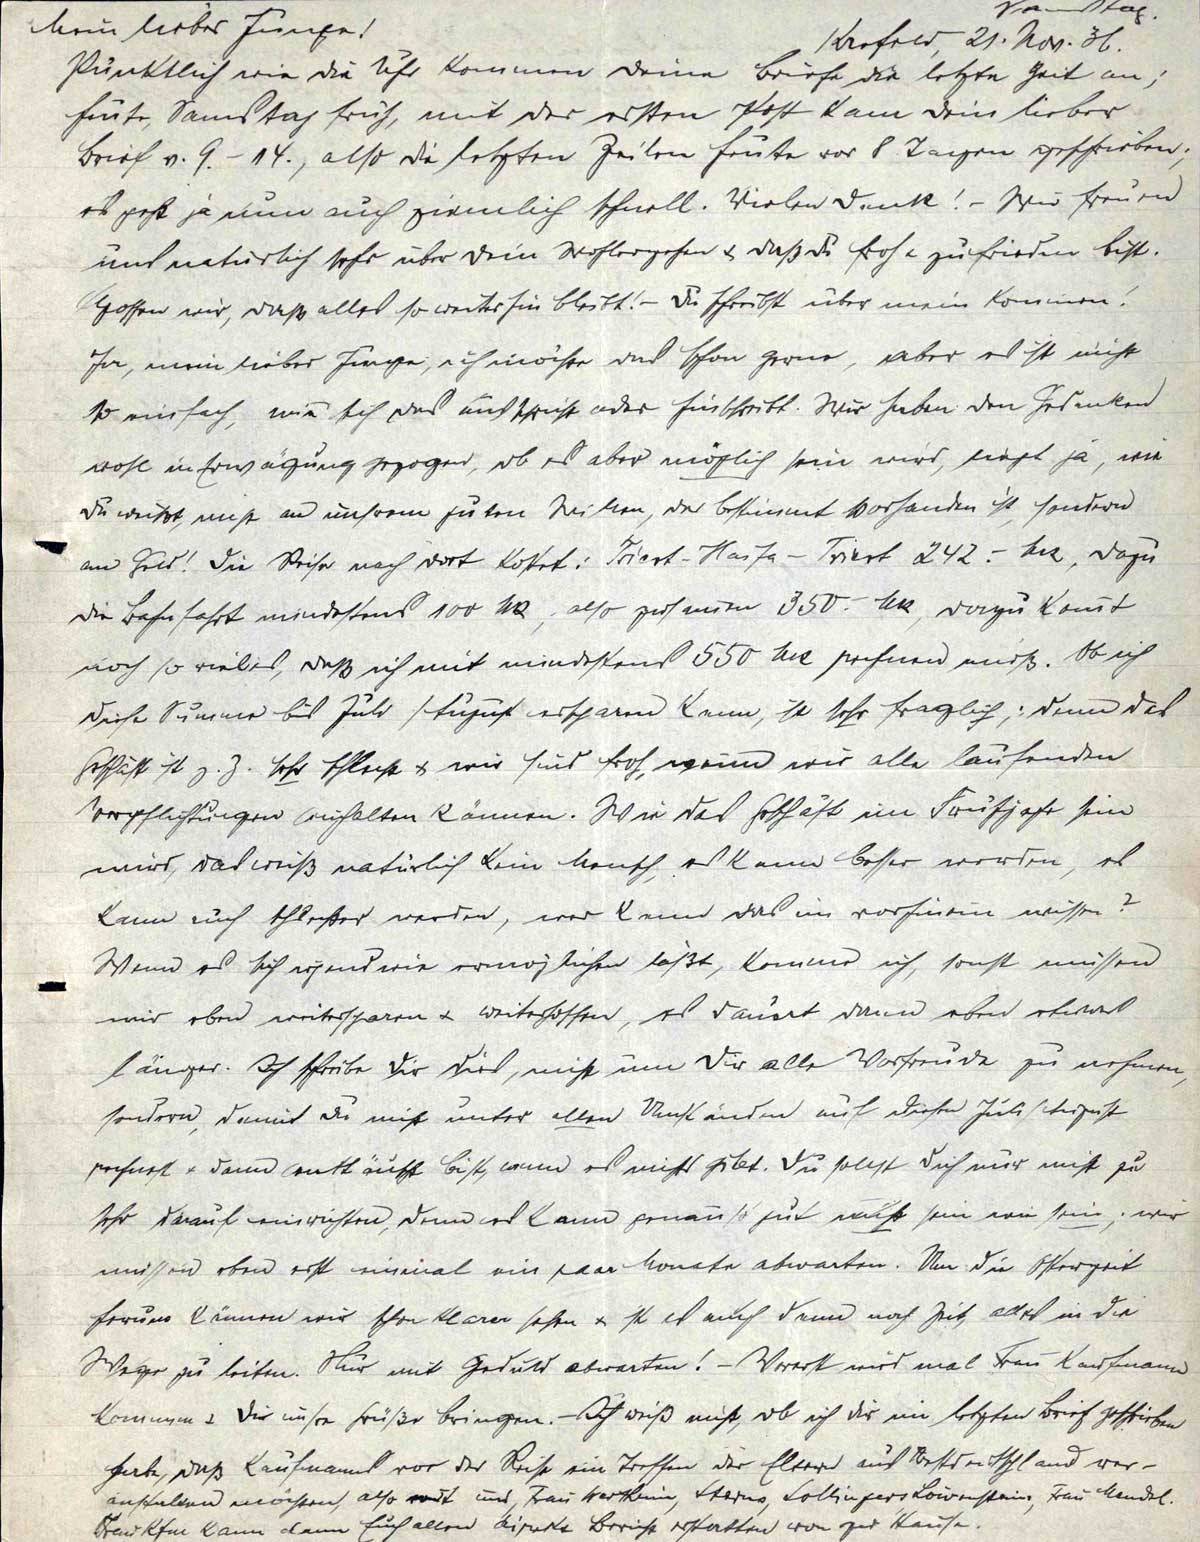 Samstag.
Mein lieber Junge!
Krefeld, 21. Nov. 36.
Pünktlich wie die Uhr kommen deine Briefe die letzte Zeit an;
heute, Samstag früh, mit der ersten Post kam dein lieber
Brief v. 9. – 14., also die letzten Zeilen heute vor 8 Tagen geschrieben;
es geht ja nun auch ziemlich schnell. Vielen Dank! – Wir freuen
uns natürlich sehr über dein Wohlergehen & daß du froh & zufrieden bist.
Hoffen wir, daß alles so weiterhin bleibt! – Du schreibst über mein Kommen!
Ja, mein lieber Junge, ich möchte das schon gerne, aber es ist nicht
so einfach, wie sich das ausspricht oder hinschreibt. Wir haben den Gedanken
wohl in Erwägung gezogen, ob es aber möglich sein wird, liegt ja, wie
du weißt, nicht an unserem guten Willen, der bestimmt vorhanden ist, sondern
am Geld! Die Reise nach dort kostet: Triest – Haifa – Triest 242.– Mk, dazu
die Bahnfahrt mindestens 100 Mk, also zusammen 350.– Mk, dazu kommt
noch so vieles, daß ich mit mindestens 550 Mk rechnen muß. Ob ich
diese Summe bis Juli/August ersparen kann, ist sehr fraglich; denn das
Geschäft ist z. Z. sehr schlecht & wir sind froh, wenn wir alle laufenden
Verpflichtungen einhalten können. Wie das Geschäft im Frühjahr sein
wird, das weiß natürlich kein Mensch, es kann besser werden, es
kann auch schlechter werden, wer kann das im vorhinein wissen?
Wenn es sich irgendwie ermöglichen läßt, komme ich, sonst müssen
wir eben weitersparen & weiterhoffen, es dauert dann eben etwas
länger. Ich schreibe dir dies, nicht um dir alle Vorfreude zu nehmen,
sondern, damit du nicht unter allen Umständen auf diesen Juli/August
rechnest & dann enttäuscht bist, wenn es nichts gibt. Du sollst dich nur nicht zu
sehr darauf einrichten, denn es kann genau so gut nicht sein wie sein; wir
müssen eben erst einmal ein paar Monate abwarten. Um die Osterzeit
herum können wir schon klarer sehen & ist es auch dann noch Zeit, alles in die
Wege zu leiten. Nur mit Geduld abwarten! – Vorerst wird mal Frau Kaufmann
kommen & dir unsre Grüße bringen. – Ich weiß nicht, ob ich dir im letzten Brief geschrieben
habe, daß Kaufmanns vor der Reise ein Treffen der Eltern aus Westdeutschland ver-
anstalten möchten, also mit uns, Frau Wertheim, Sterns, Löwensteins, Frau Mendel.
kann dann Euch allen direkte Berichte erstatten von zu Hause.